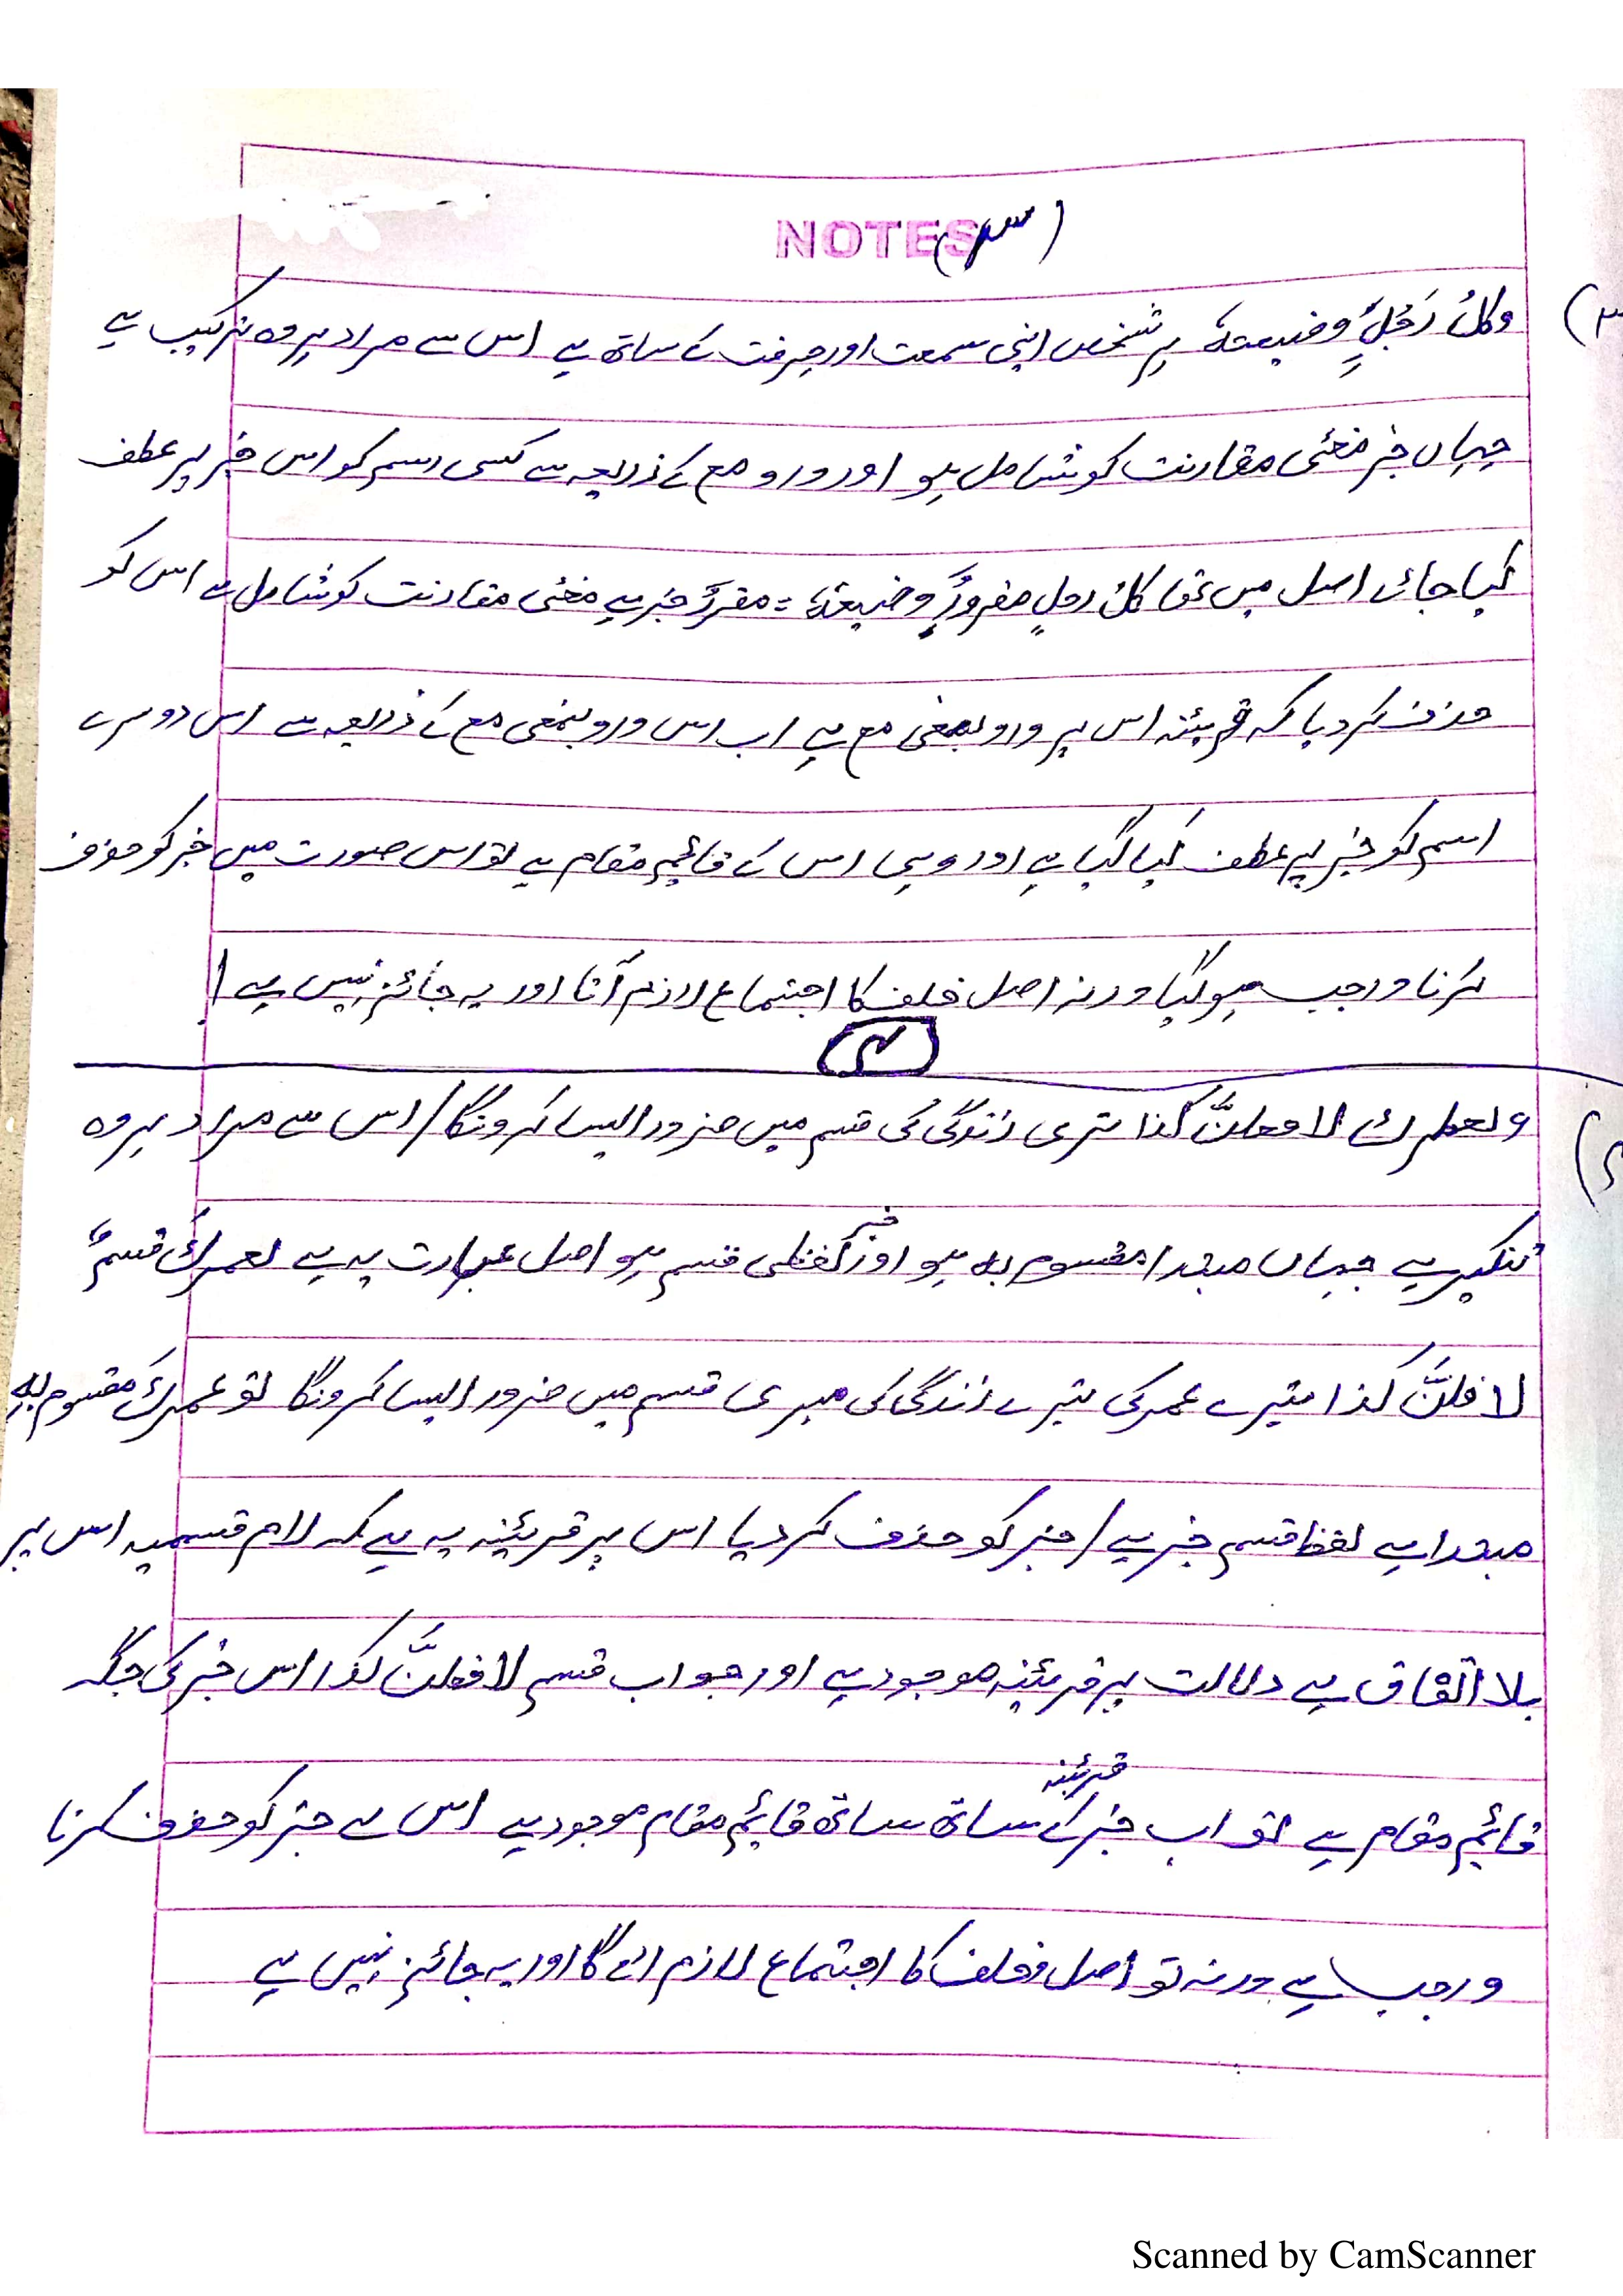 NOTES
(۳)
۳) وکلُ رَجُلٍ وضیعتہٗ ہر شخص اپنی سمعت اور حرفت کے ساتھ ہے اس سے مراد ہر وہ ترکیب ہے
جہاں خبر معنٰی مقارنت کو شامل ہو اور واو مع کے ذریعہ سے کسی اسم کو اس خبر پر عطف
کیا جائے اصل میں تھا کلُ رجلٍ مقرونٌ وضیعتہٗ = مقرونٌ خبر ہے معنٰی مقارنت کو شامل ہے اس کو
حذف کر دیا کہ قریئنہ اس پر واو بمعنی مع ہے اب اس واو بمعنی مع کے ذریعہ سے اس دوسرے
اسم کو خبر پر عطف کیا گیا ہے اور وہی اس کے قائم مقام ہے تو اس صورت میں خبر کو حذف
کرنا واجب ہو گیا ورنہ اصل خلف کا اجتماع لازم آتا اور یہ جائز نہیں ہے
۴
ولعمرک لا فعلنَّ کذا تیری زندگی کی قسم میں ضرور ایسا کرونگا / اس سے مراد ہر وہ
ترکیب ہے جہاں مبتدا مقسوم بہ ہو اور خبر لفظی قسم ہو اصل عبارت یہ ہے لعمرکَ قسمیٌ
لا فعلنَّ کذا تیرے عمر کی تیرے زندگی کی میری قسم میں ضرور ایسا کرونگا تو عمرکَ مقسوم بہٖ
مبتدا ہے لفظ قسم خبر ہے / خبر کو حذف کر دیا اس پر قریئنہ یہ ہے کہ لام قسمیہ اس پر
بلا اتفاق ہے دلالت پر قریئنہ موجود ہے اور جواب قسم لا فعلنَّ کذا اس خبر کی جگہ
قائم مقام ہے تو اب خبر کے قریئنہ ساتھ ساتھ قائم مقام موجود ہے اس سے خبر کو حذف کرنا
واجب ہے ورنہ تو اصل وخلف کا اجتماع لازم ائے گا اور یہ جائز نہیں ہے
Scanned by CamScanner